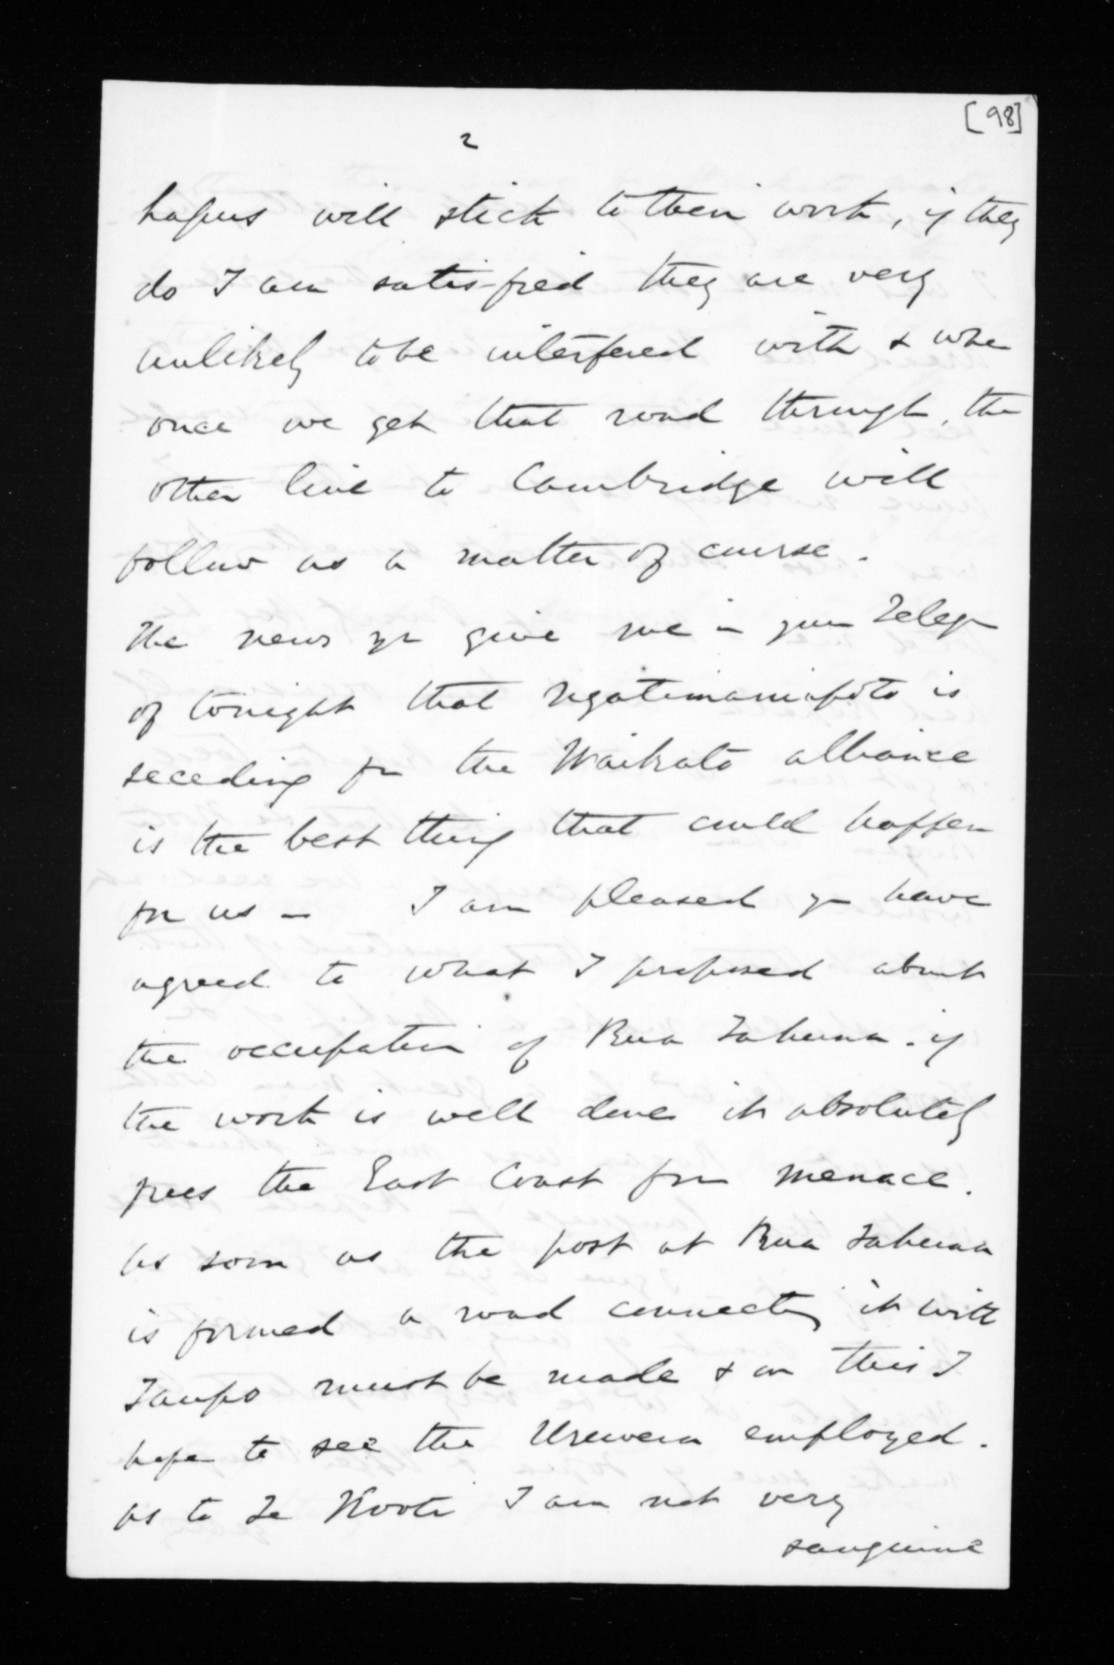 [98]
2
hapus will stick to their work, if they
do I am satisfied they are very
unlikely to be interfered with & when
once we get that road through, the
other line to Cambridge will
follow as a matter of course.
The news yr give me in your Telegr
of tonight that Ngatimaniapoto is
seceding fm the Waikato alliance
is the best thing that could happen
for us — I am pleased yr have
agreed to what I proposed about
the occupation of Rua Tahuna. if
the work is well done it absolutely
frees the East Coast from menace.
As soon as the post at Rua Tahuna
is formed a road connecting it with
Taupo must be made & on this I
hope to see the Urewera employed.
As to Te Kooti I am not very
sanguine